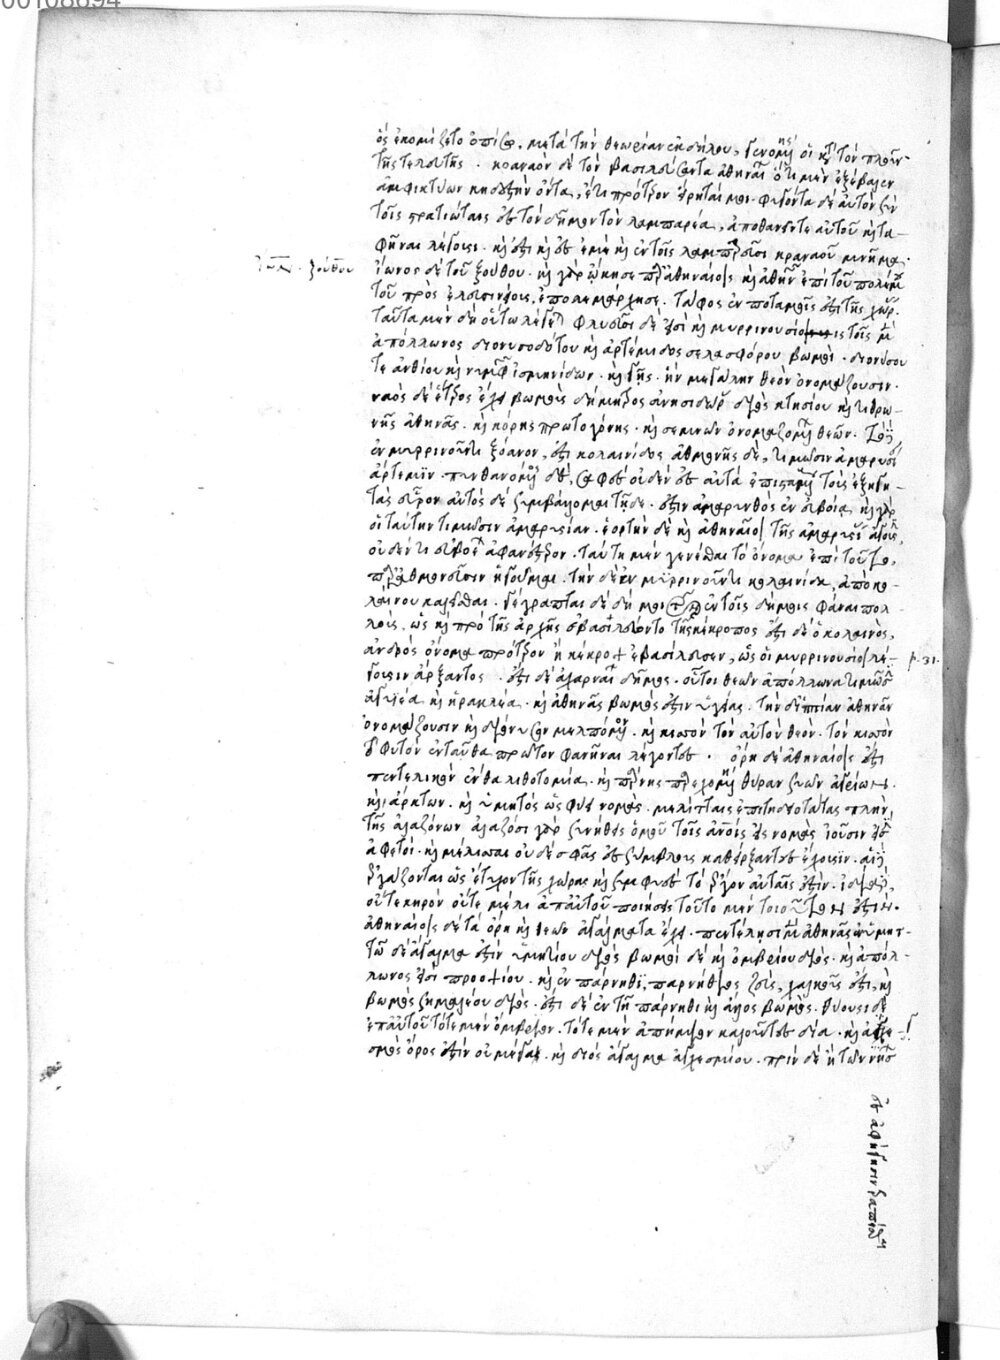 00108694
ὃς ἐκομίζετο ὀπίσω μετὰ τὴν θεωρίαν ἐκ δήλου, γενομένης οἱ κατὰ τὸν πλοῦν
τῆς τελευτῆς. κραναὸν δὲ τὸν βασιλεύσαντα ἀθηναίων ὅτι μὲν ἐξέβαλεν
ἀμφικτύων κηδεστὴν ὄντα, ἔτι πρότερον εἴρηταί μοι. φυγόντα δὲ αὐτὸν σὺν
τοῖς στρατιώταις ἐς τὸν δῆμον τὸν λαμπρέα, ἀποθανεῖν τε αὐτοῦ καὶ τα-
φῆναι λέγουσι. καὶ ἔστι καὶ ἐς ἐμὲ καὶ ἐν τοῖς λαμπτρεῦσι κραναοῦ μνῆμα.
ἴωνος ξούθου
ἴωνος δὲ τοῦ ξούθου. καὶ γὰρ ᾤκησε παρὰ ἀθηναίοις καὶ ἀθηναίων ἐπὶ τοῦ πολέμου
τοῦ πρὸς ἐλευσινίους ἐπολεμάρχησε. τάφος ἐν ποταμοῖς ἐστὶ τῆς χώρας.
ταῦτα μὲν δὴ οὕτω λέγεται φλυεῦσι δέ εἰσι καὶ μυρρινουσίοις τοῖς μὲν
ἀπόλλωνος διονυσοδότου καὶ ἀρτέμιδος σελασφόρου βωμοὶ. διονύσου
τε ἀνθίου καὶ νυμφῶν ἰσμηνίδων. καὶ γῆς. ἣν μεγάλην θεὸν ὀνομάζουσιν.
ναὸς δὲ ἕτερος ἔχει βωμοὺς δήμητρος ἀνησιδώρας διὸς κτησίου καὶ τιθρω-
νῆς ἀθηνᾶς. καὶ κόρης πρωτογόνης. καὶ σεμνῶν ὀνομαζομένων θεῶν. τὸ δὲ
ἐν μυρρινοῦντι ξόανον, ἔστι κολαινίδος ἀθμονεῖς δὲ, τιμῶσιν ἀμαρυσίαν
ἄρτεμιν πυνθανόμενος δὲ, σαφὲς οὐδὲν ἐς αὐτὰ ἐπισταμένους τοὺς ἐξηγη-
τὰς εὗρον αὐτὸς δὲ συμβάλλομαι τῇδε. ἔστιν ἀμάρυνθος ἐν εὐβοίᾳ, καὶ γὰρ
οἱ ταύτῃ τιμῶσιν ἀμαρυσίαν. ἑορτὴν δὲ καὶ ἀθηναῖοι τῆς ἀμαρυσίας ἄγουσιν
οὐδέν τι εὐβοέων ἀφανέστερον. ταύτῃ μὲν γενέσθαι τὸ ὄνομα ἐπὶ τούτῳ
παρὰ ἀθμονεῦσιν ἡγοῦμαι. τὴν δὲ ἐν μυρρινοῦντι κολαινίδα, ἀπὸ κο-
λαίνου καλεῖσθαι. γέγραπται δὲ δή μοι ἐν τοῖς δήμοις φάναι πολ-
λοὺς, ὡς καὶ πρὸ τῆς ἀρχῆς ἐβασιλεύοντο τῆς κέκροπος ἔστι δὲ ὁ κόλαινος,
ἀνδρὸς ὄνομα πρότερον ἢ κέκροψ ἐβασίλευσεν, ὡς οἱ μυρρινούσιοι λέ-
p. 31.
γουσιν ἄρξαντος. ἔστι δὲ ἀχαρναὶ δῆμος. οὗτοι θεῶν ἀπόλλωνα τιμῶσιν
ἀγυιέα καὶ ἡρακλέα. καὶ ἀθηνᾶς βωμός ἐστιν ὑγείας. τὴν δὲ ἱππίαν ἀθηνᾶν
ὀνομάζουσιν καὶ διόνυσον μελπόμενον. καὶ κισσὸν τὸν αὐτὸν θεὸν. τὸν κισσὸν
τὸ φυτὸν ἐνταῦθα πρῶτον φανῆναι λέγοντες. ὄρη δὲ ἀθηναίοις ἐστὶ
πεντελικὸν ἔνθα λιθοτομία. καὶ πάρνης παρεχομένη θήραν συῶν ἀγρίων
καὶ ἄρκτων. καὶ ὑμηττὸς ὃς φύει νομὰς. μελίσσαις ἐπιτηδειοτάτας πλὴν
τῆς ἀλαζόνων ἀλαζόσι γὰρ συνήθεις ὁμοῦ τοῖς ἄλλοις ἐς νομὰς ἰοῦσιν εἰσὶν
ἄφετοι. καὶ μέλισσαι οὐδὲ σφᾶς ἐς σίμβλους καθείρξαντες ἔχουσιν. αἱ δὲ
ἐργάζονται ὡς ἔτυχον τῆς χώρας καὶ συμφυὲς τὸ ἔργον αὐταῖς ἐστὶν. ἰδίᾳ δὲ
οὔτε κηρὸν οὔτε μέλι ἀπ᾽ αὐτοῦ ποιήσεις τοῦτο μὲν τοιοῦτόν ἐστιν.
ἀθηναίοις δὲ τὰ ὄρη καὶ θεῶν ἀγάλματα ἔχει. πεντέλησι μὲν ἀθηνᾶς ἐν ὑμητ-
τῷ δὲ ἄγαλμά ἐστιν ὑμηττίου διὸς βωμοὶ δὲ καὶ ὀμβρίου διὸς. καὶ ἀπόλ-
λωνός εἰσι προοψίου. καὶ ἐν πάρνηθι, παρνήθιος ζεὺς, χαλκοῦς ἐστι, καὶ
βωμὸς σημαλέου διὸς. ἔστι δὲ ἐν τῇ πάρνηθι καὶ ἄλλος βωμὸς. θύουσι δὲ
ἐπ᾽ αὐτοῦ τότε μὲν ὄμβριον. τότε μὲν ἀπήμιον καλοῦντες δία. καὶ ἀγχε-
σμὸς ὄρος ἐστὶν οὐ μέγα. καὶ διὸς ἄγαλμα ἀγχεσμίου. πρὶν δὲ ἢ τῶν νήσων
ἐς ἀφήγησιν τραπέσθαι